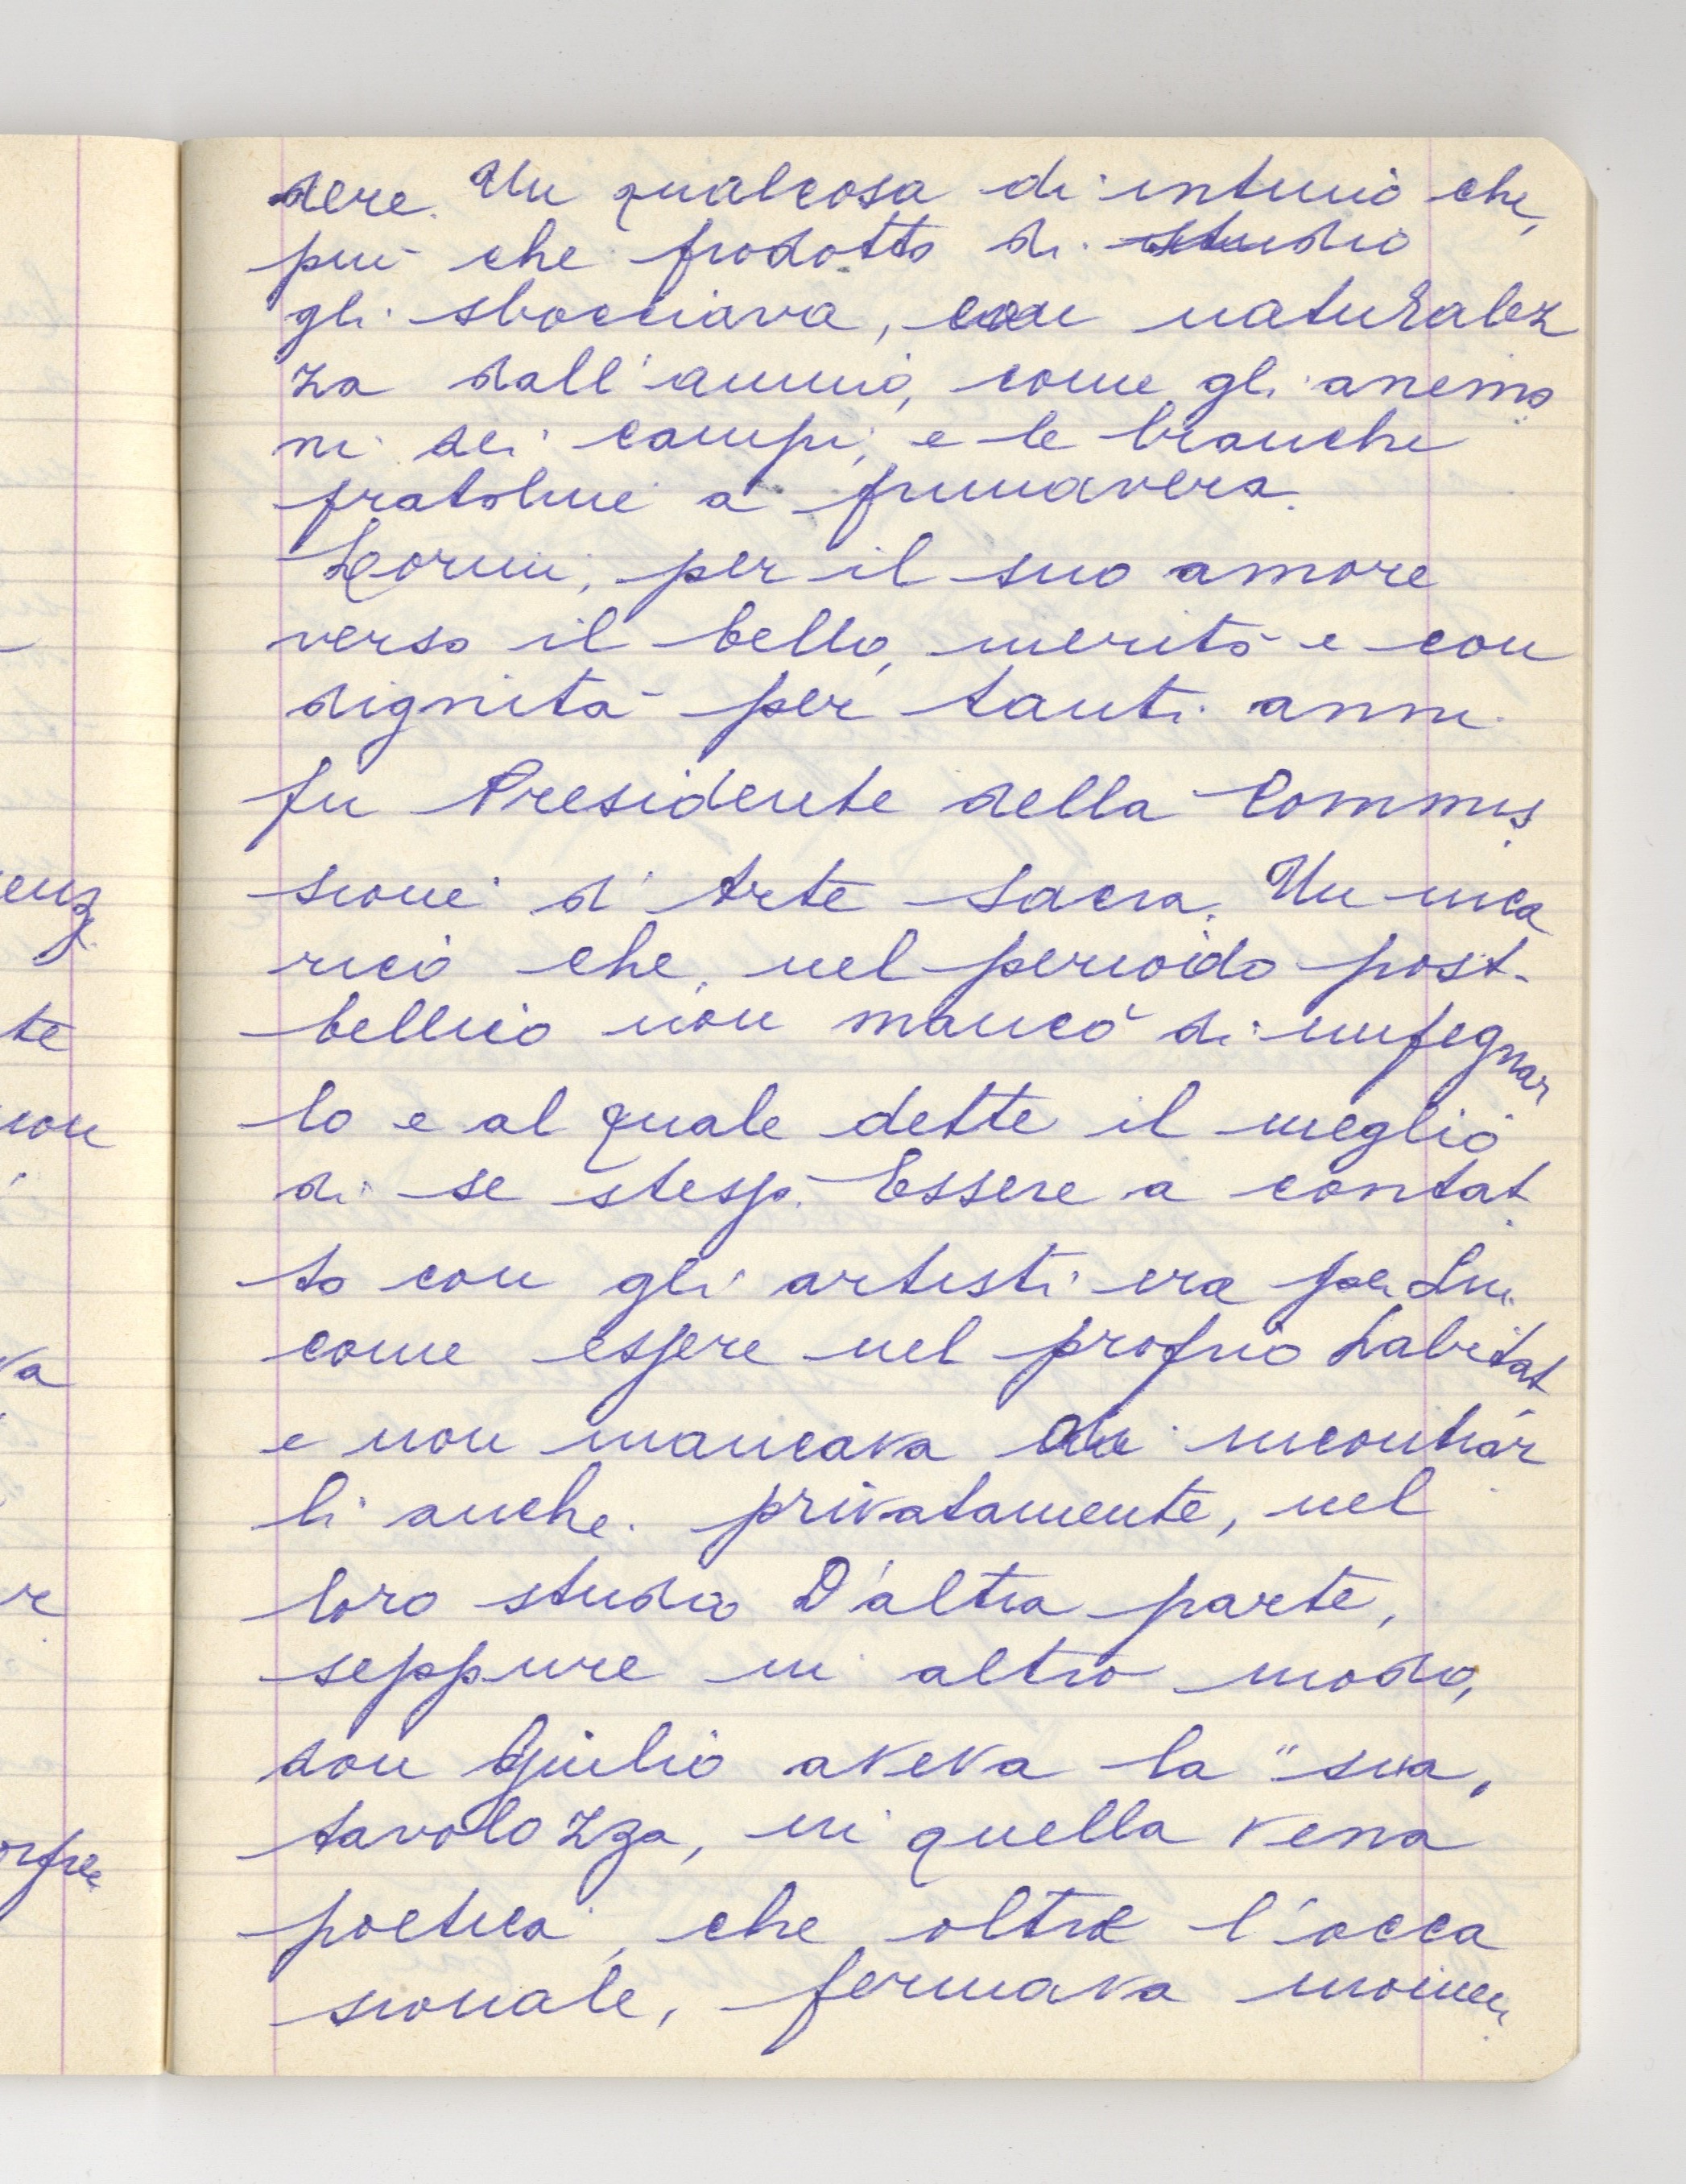 dere. Un qualcosa di intimo che,
più che prodotto di studio
gli sbocciava, con naturalez
za dall'animo, come gli anemo
ni dei campi, e le bianche
pratoline a primavera.
Lorini, per il suo amore
verso il bello, meritò e con
dignità per tanti anni
fu Presidente della Commis
sione d'Arte Sacra. Un inca
rico che, nel periodo post-
bellico non mancò di impegnar
lo e al quale dette il meglio
di se stesso. Essere a contat
to con gli artisti era per Lui
come essere nel proprio habitat
e non mancava di incontrar
li anche privatamente, nel
loro studio D'altra parte,
seppure in altro modo,
don Giulio aveva la "sua"
tavolozza, in quella vena
poetica, che oltre l'occa
sionale, fermava momen